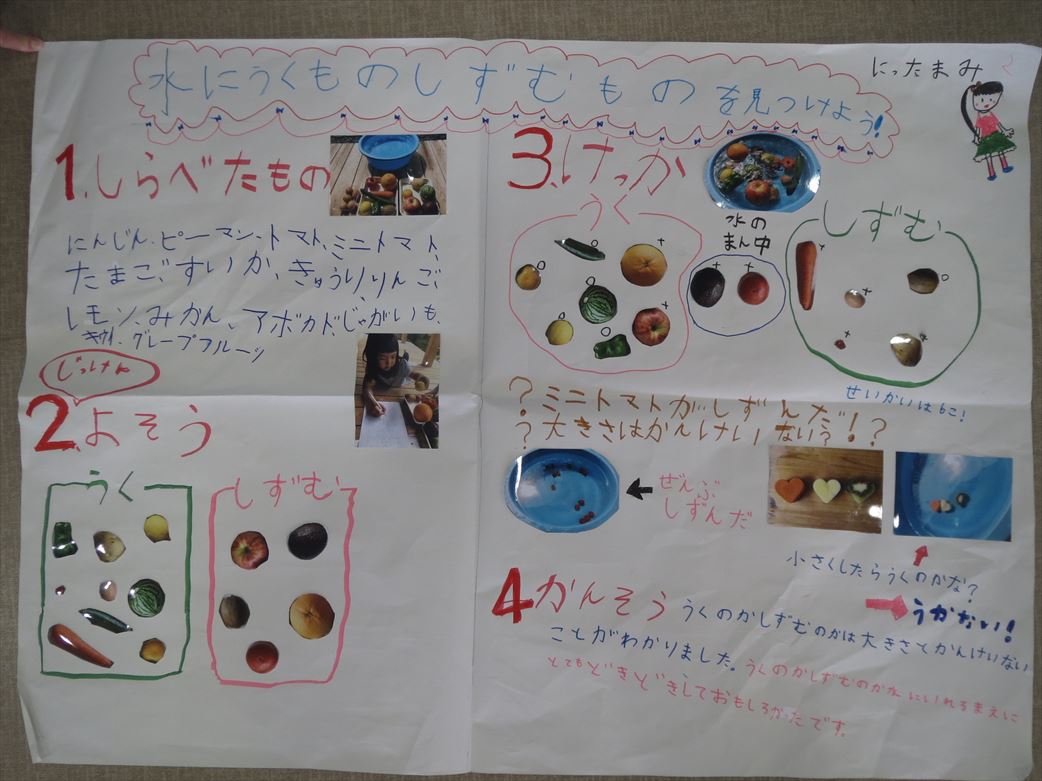 水にうくものしずむものを見つけよう!
にったまみ
1.しらべたもの
にんじん、ピーマン、トマト、ミニトマト、
たまご、すいか、きゅうり、りんご、
レモン、みかん、アボカド、じゃがいも、
キウイ、グレープフルーツ
じっけん
2.よそう
うく
しずむ
3.けっか
うく
水の
まん中
しずむ
せいかいは6こ!
?ミニトマトがしずんだ!?
?大きさはかんけいない?!?
ぜんぶ
しずんだ
小さくしたらうくのかな?
うかない!
4かんそう
うくのかしずむのかは大きさでかんけいない
ことがわかりました。
うくのかしずむのか水にいれるまえに
とてもどきどきしておもしろかったです。